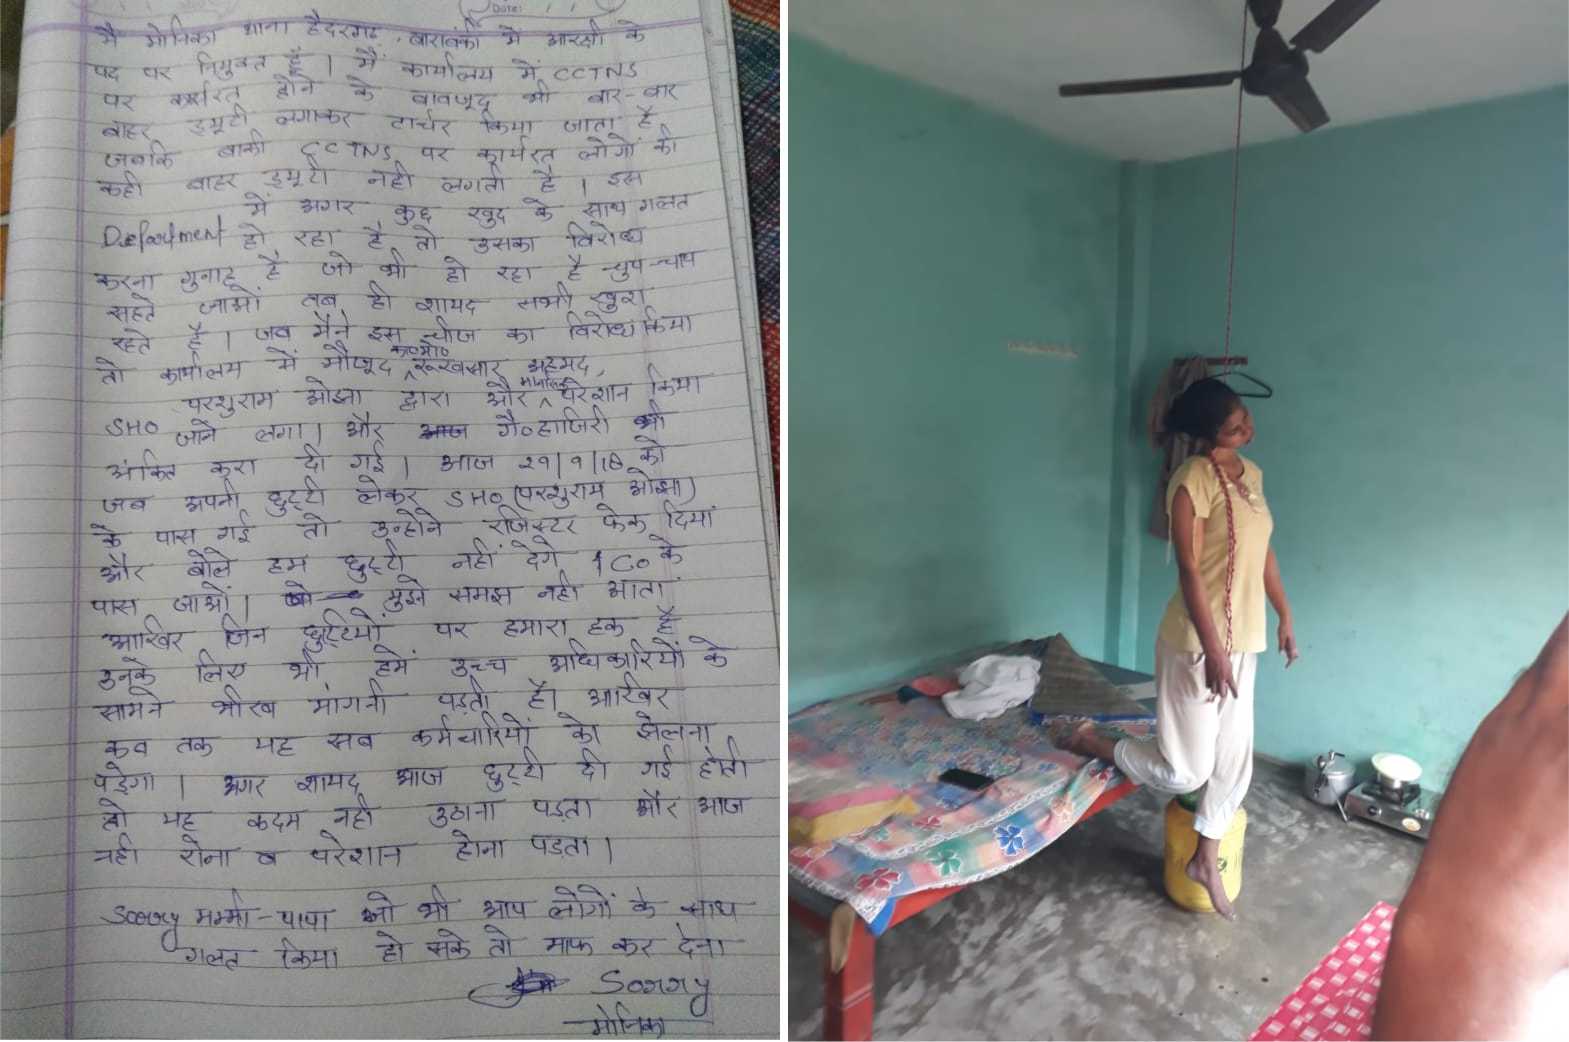 Date:
मै मोनिका थाना हैदरगढ़, बाराबंकी में आरक्षी के
पद पर नियुक्त हूँ। मैं कार्यालय में CCTNS
पर कार्यरत होने के बावजूद भी बार-बार
बाहर ड्यूटी लगाकर टार्चर किया जाता है,
जबकि बाकी CCTNS पर कार्यरत लोगों की
कही बाहर ड्यूटी नही लगती है। इस
Department में अगर कुछ खुद के साथ गलत
हो रहा है तो उसका विरोध
करना गुनाह है जो भी हो रहा है चुप-चाप
सहते जाओ तब ही शायद सभी खुश
रहते है। जब मैने इस चीज का विरोध किया
तो कार्यालय में मौजूद का०मो० रूखसार अहमद,
SHO परशुराम ओझा द्वारा और मानसिक परेशान किया
जाने लगा। और गै०हाजिरी भी
अंकित करा दी गई। आज 29/9/18 को
जब अपनी छुट्टी लेकर SHO (परशुराम ओझा)
के पास गई तो उन्होने रजिस्टर फेक दिया
और बोले हम छुट्टी नहीं देंगे। CO के
पास जाओ। मुझे समझ नही आता
आखिर जिन छुट्टियों पर हमारा हक है
उनके लिए भी हमें उच्च अधिकारियों के
सामने भीख मांगनी पड़ती है। आखिर
कब तक यह सब कर्मचारियों को झेलना
पड़ेगा। अगर शायद आज छुट्टी दी गई होती
तो यह कदम नही उठाना पडता और आज
नही रोना व परेशान होना पडता।
Soorry मम्मी-पापा जो भी आप लोगों के साथ
गलत किया हो सके तो माफ कर देना
Sorrry
मोनिका